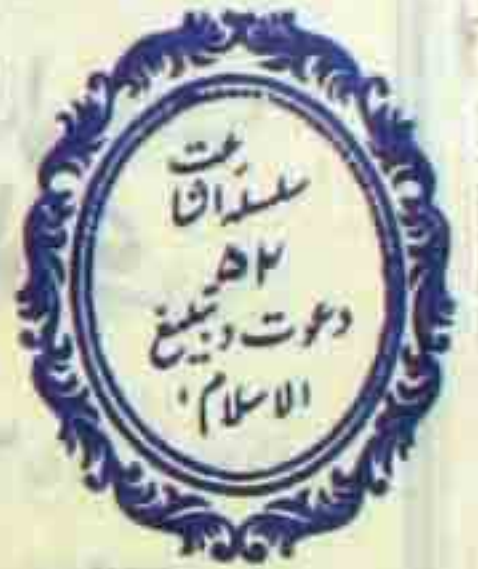 سلسلہ اشاعت
۵۲
دعوت و تبلیغ
الاسلام